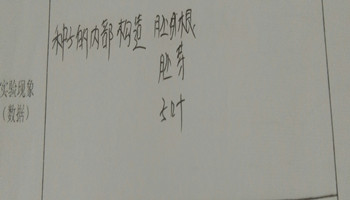 种子的内部构造 胚根
胚芽
子叶
实验现象
(数据)